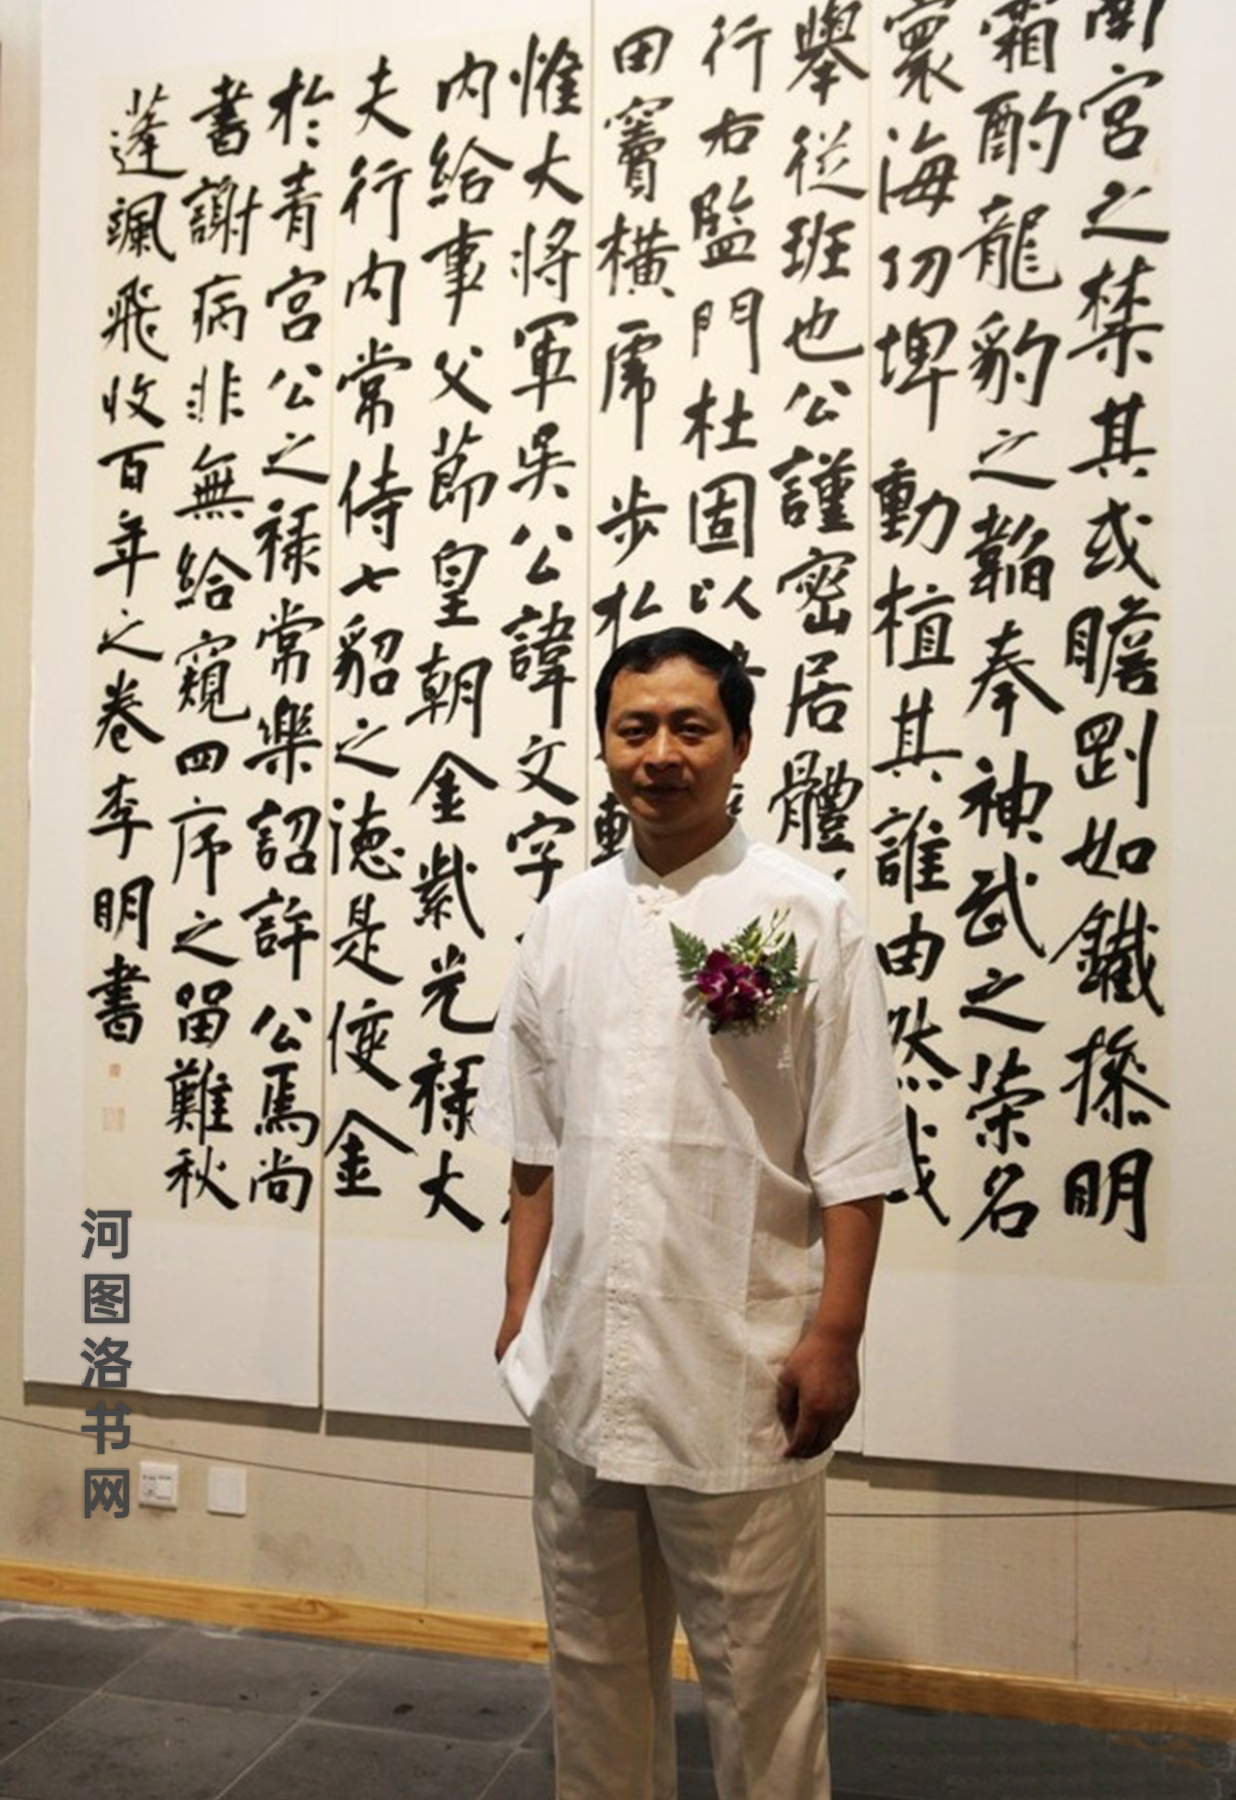 閣宮之禁其或瞻劉如鐵操明
霜酌龍豹之韜奉神武之榮名
寰海功埤動植其誰由然哉
舉從班也公謹密居體
行右監門杜固以
田竇橫虎步於
惟大將軍吳公公諱文字
內給事父節皇朝金紫光祿大
夫行內常侍七貂之德是侯金
於青宮公之祿常樂詔許公焉尚
書謝病非無給窺四序之留難秋
蓬颯飛收百年之卷李明書
河图洛书网